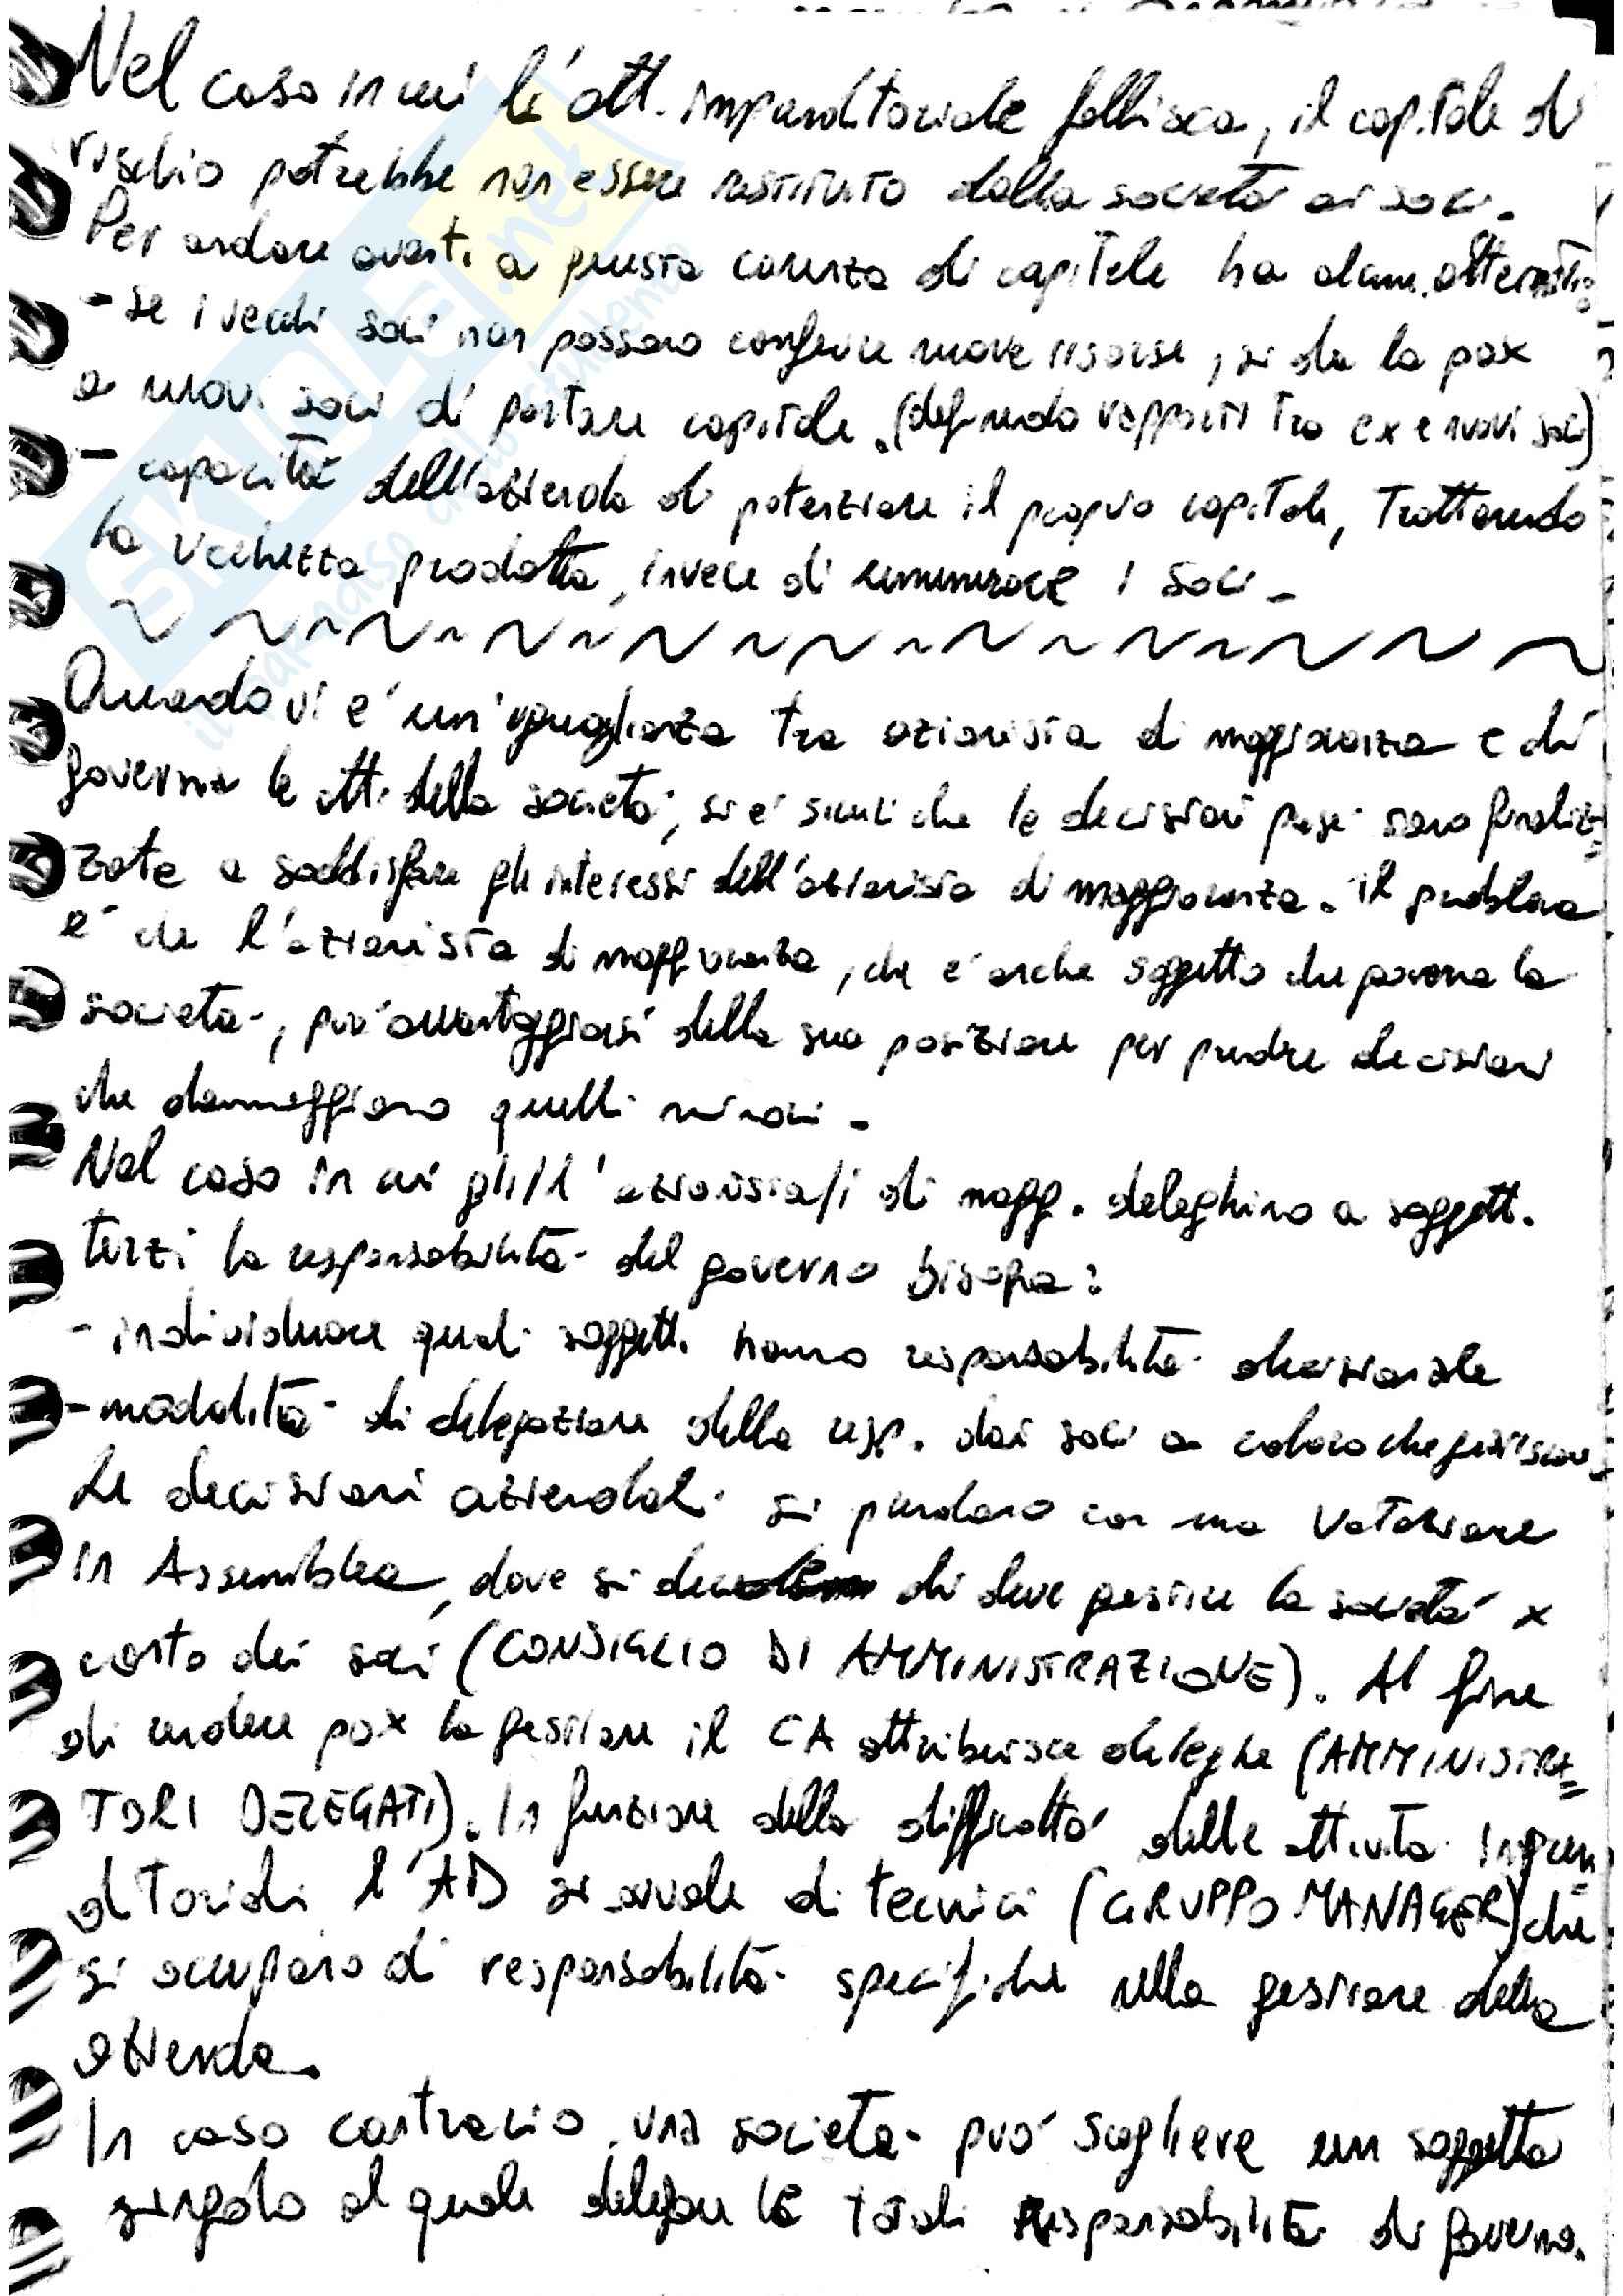 Nel caso in cui l'att. imprenditoriale fallisca, il capitale di
rischio potrebbe non essere restituito dalla società ai soci.
Per andare avanti a questa carenza di capitale ha alcune alternative
- se i vecchi soci non possono conferire nuove risorse, si da la pox
a nuovi soci di portare capitale. (definendo rapporti tra ex e nuovi soci)
- capacità dell'azienda di potenziare il proprio capitale, trattenendo
la ricchezza prodotta, invece di remunerare i soci.
Quando vi è un'uguaglianza tra azionista di maggioranza e chi
governa le att. della società, si è sicuri che le decisioni prese siano finaliz=
zate a soddisfare gli interessi dell'azionista di maggioranza. Il problema
è che l'azionista di maggioranza, che è anche soggetto che governa la
società, può avvantaggiarsi della sua posizione per prendre decisioni
che danneggiano quelli minori.
Nel caso in cui gli/l'azionista/i di magg. deleghino a soggetti
terzi la responsabilità del governo bisogna:
- individuare quali soggetti hanno responsabilità decisionale
- modalità di delegazione della resp. dai soci a coloro che gestiscono
Le decisioni aziendali si prendono con una votazione
in Assemblea, dove si decide chi deve gestire la società x
conto dei soci (CONSIGLIO DI AMMINISTRAZIONE). Al fine
di rendere pox la gestione il CA attribuisce deleghe (AMMINISTRA=
TORI DELEGATI). In funzione della difficoltà delle attività impren=
ditoriali l'AD si avvale di tecnici (GRUPPO MANAGER) che
si occupano di responsabilità specifiche nella gestione della
azienda.
In caso contrario, una società può scegliere un soggetto
singolo al quale delegare le totali responsabilità di governo.
SKUOLA.net
il paradiso dello studente